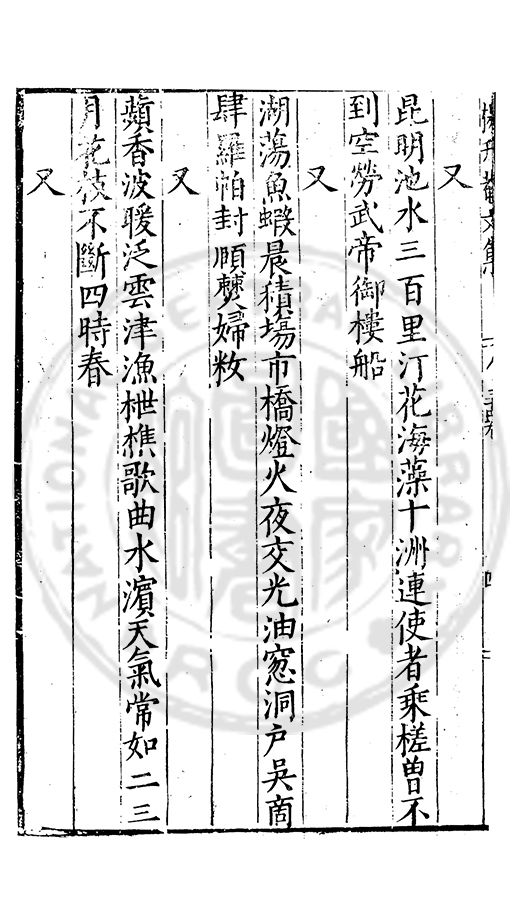 又
昆明池水三百里汀花海藻十洲連使者乘槎曾不
到空勞武帝御樓船
又
湖蕩魚蝦晨積塲市橋燈火夜交光油窓洞戶吳商
肆羅帕封頤僰婦籹
又
蘋香波暖泛雲津漁枻樵歌曲水濱天氣常如二三
月花枝不斷四時春
又